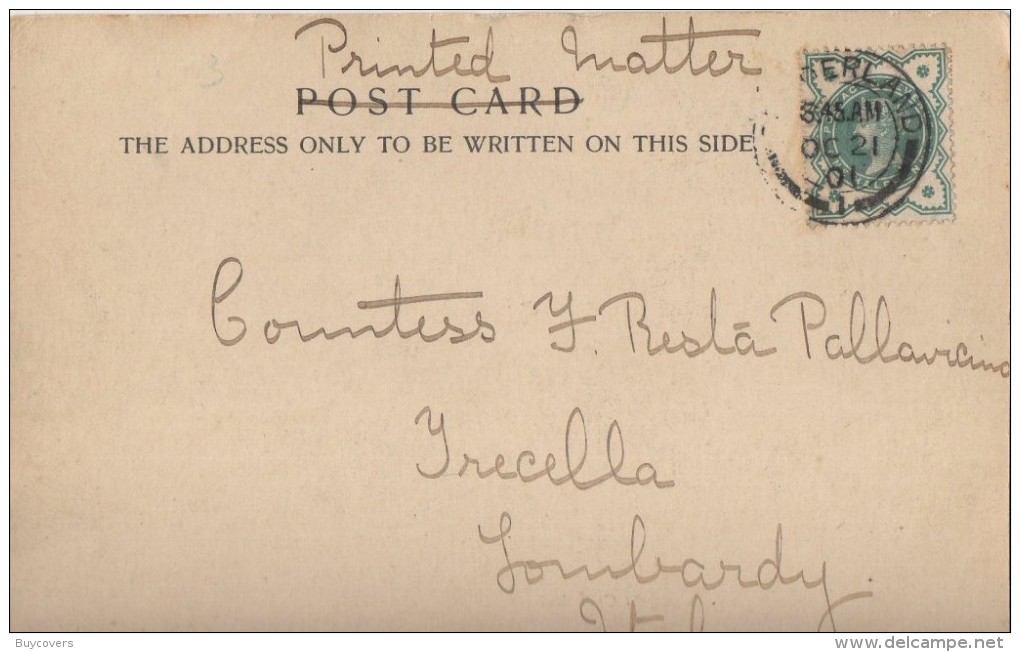 3
Printed Matter
POST CARD
THE ADDRESS ONLY TO BE WRITTEN ON THIS SIDE
ERLAND
8.45.AM
OC 21
01
1
Countess F. Resta Pallavicino
Trecella
Lombardy
Buycovers
www.delcampe.net